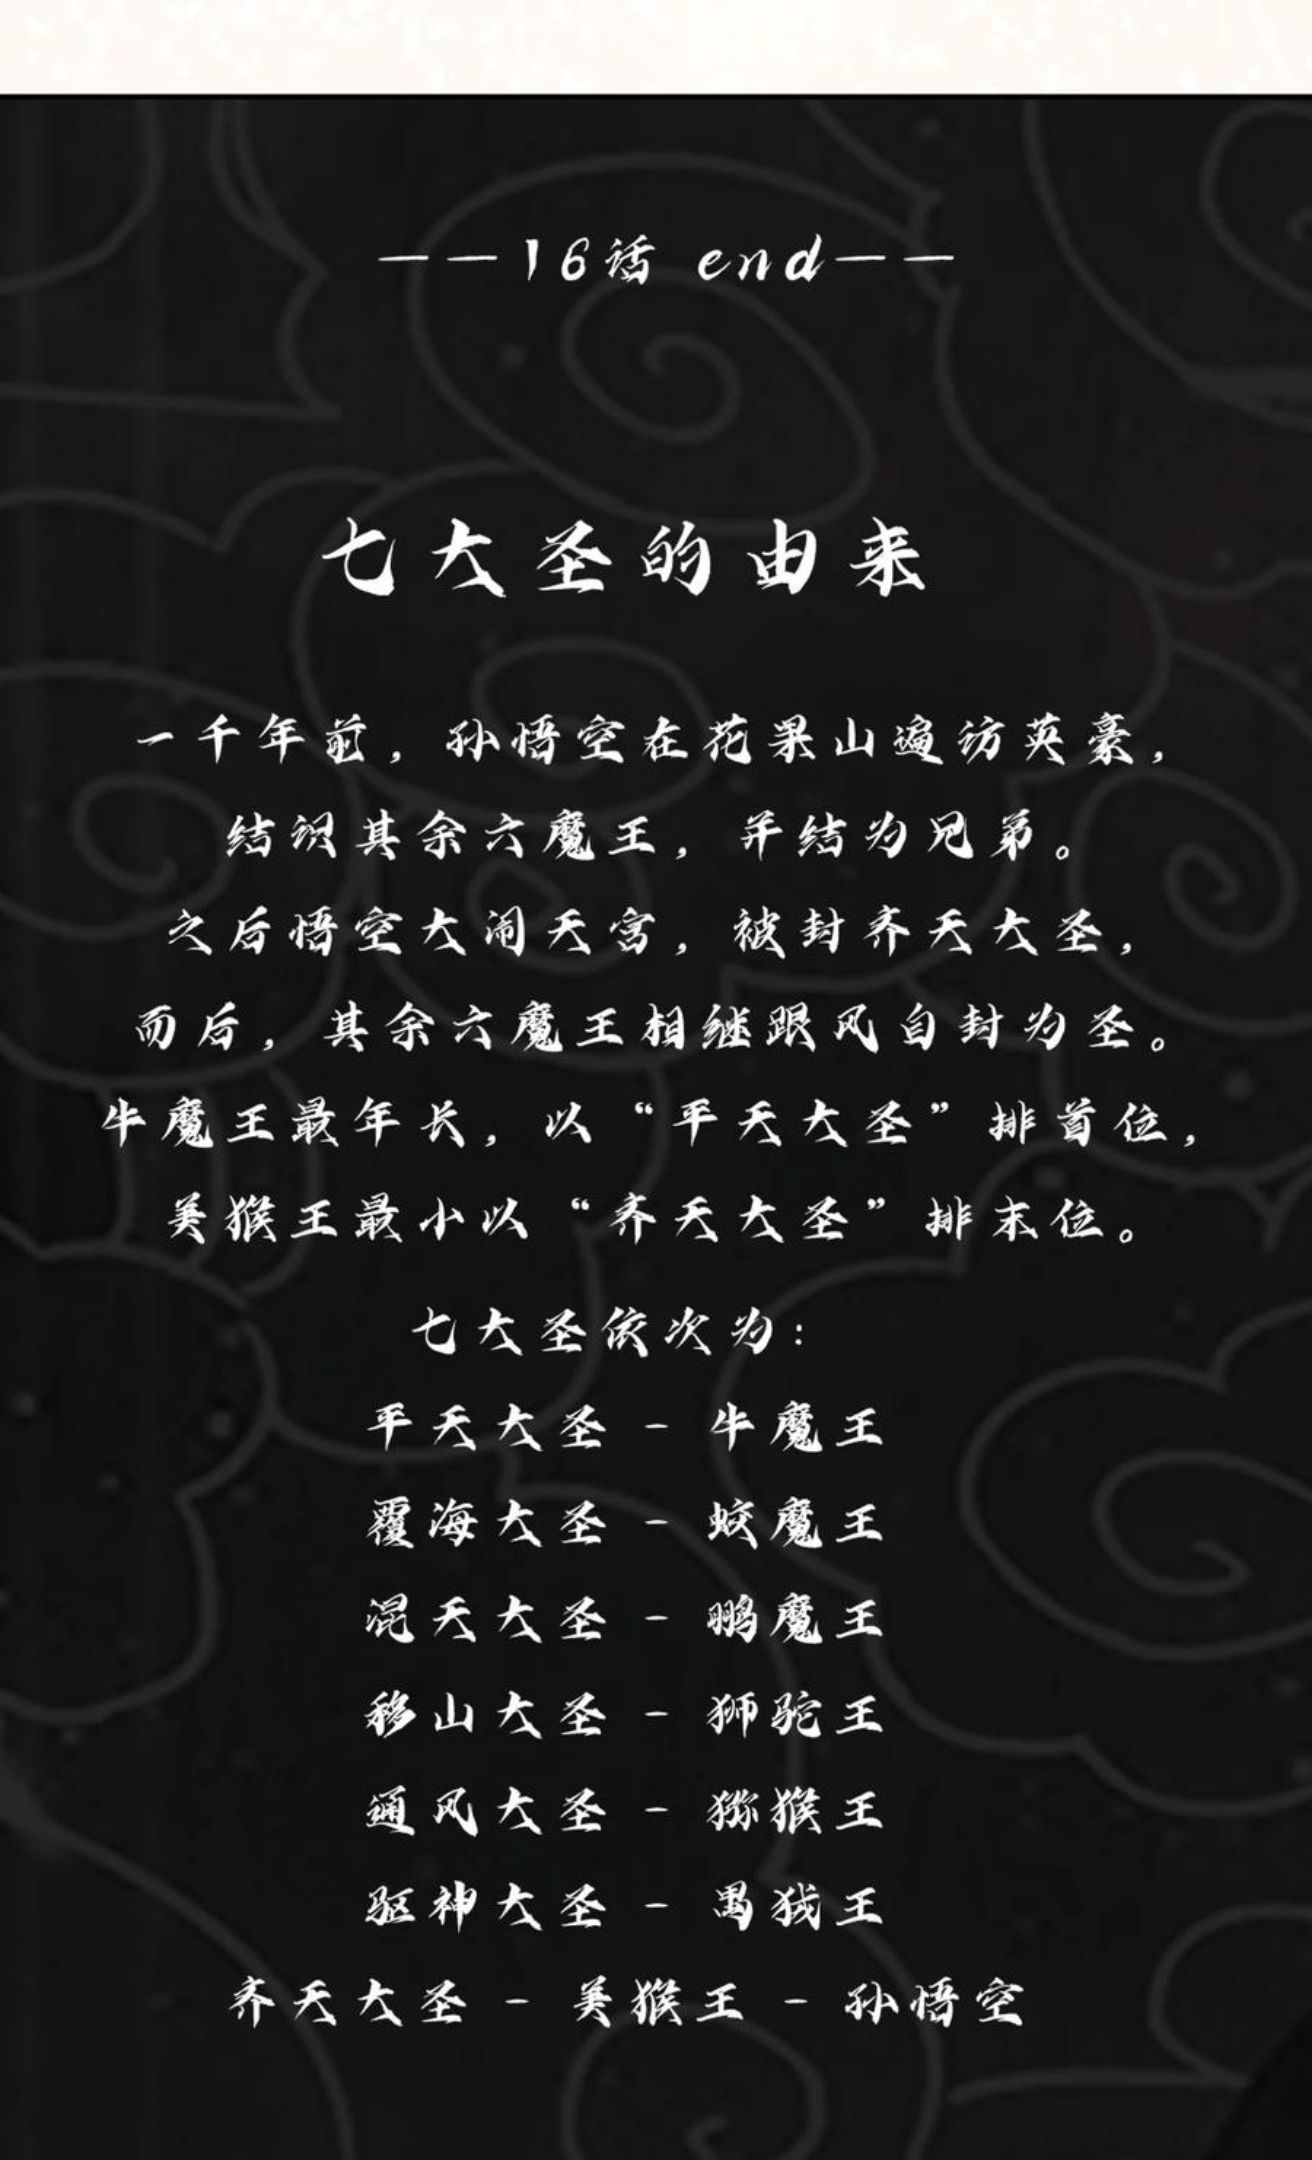 ——16话 end——
七大圣的由来
一千年前，孙悟空在花果山遍访英豪，
结识其余六魔王，并结为兄弟。
之后悟空大闹天宫，被封齐天大圣，
而后，其余六魔王相继跟风自封为圣。
牛魔王最年长，以“平天大圣”排首位，
美猴王最小以“齐天大圣”排末位。
七大圣依次为：
平天大圣 - 牛魔王
覆海大圣 - 蛟魔王
混天大圣 - 鹏魔王
移山大圣 - 狮驼王
通风大圣 - 猕猴王
驱神大圣 - 禺狨王
齐天大圣 - 美猴王 - 孙悟空